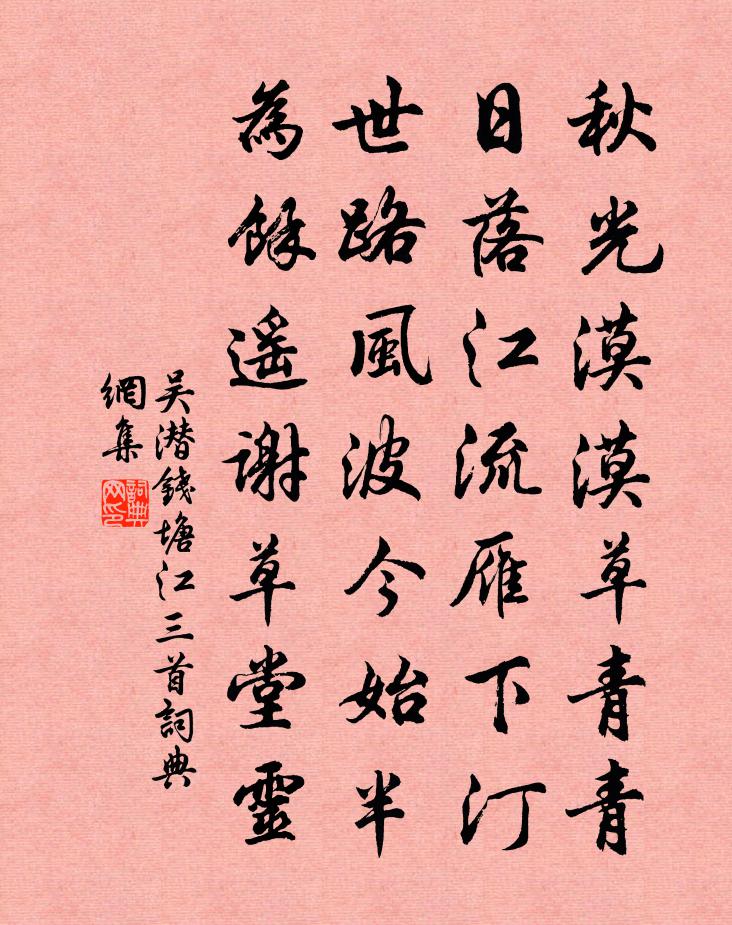 秋光漠漠草青青
日落江流雁下汀
世路風波今始半
為餘遥謝草堂靈
吴潜錢塘江三首詞典
網集
詞典
网印